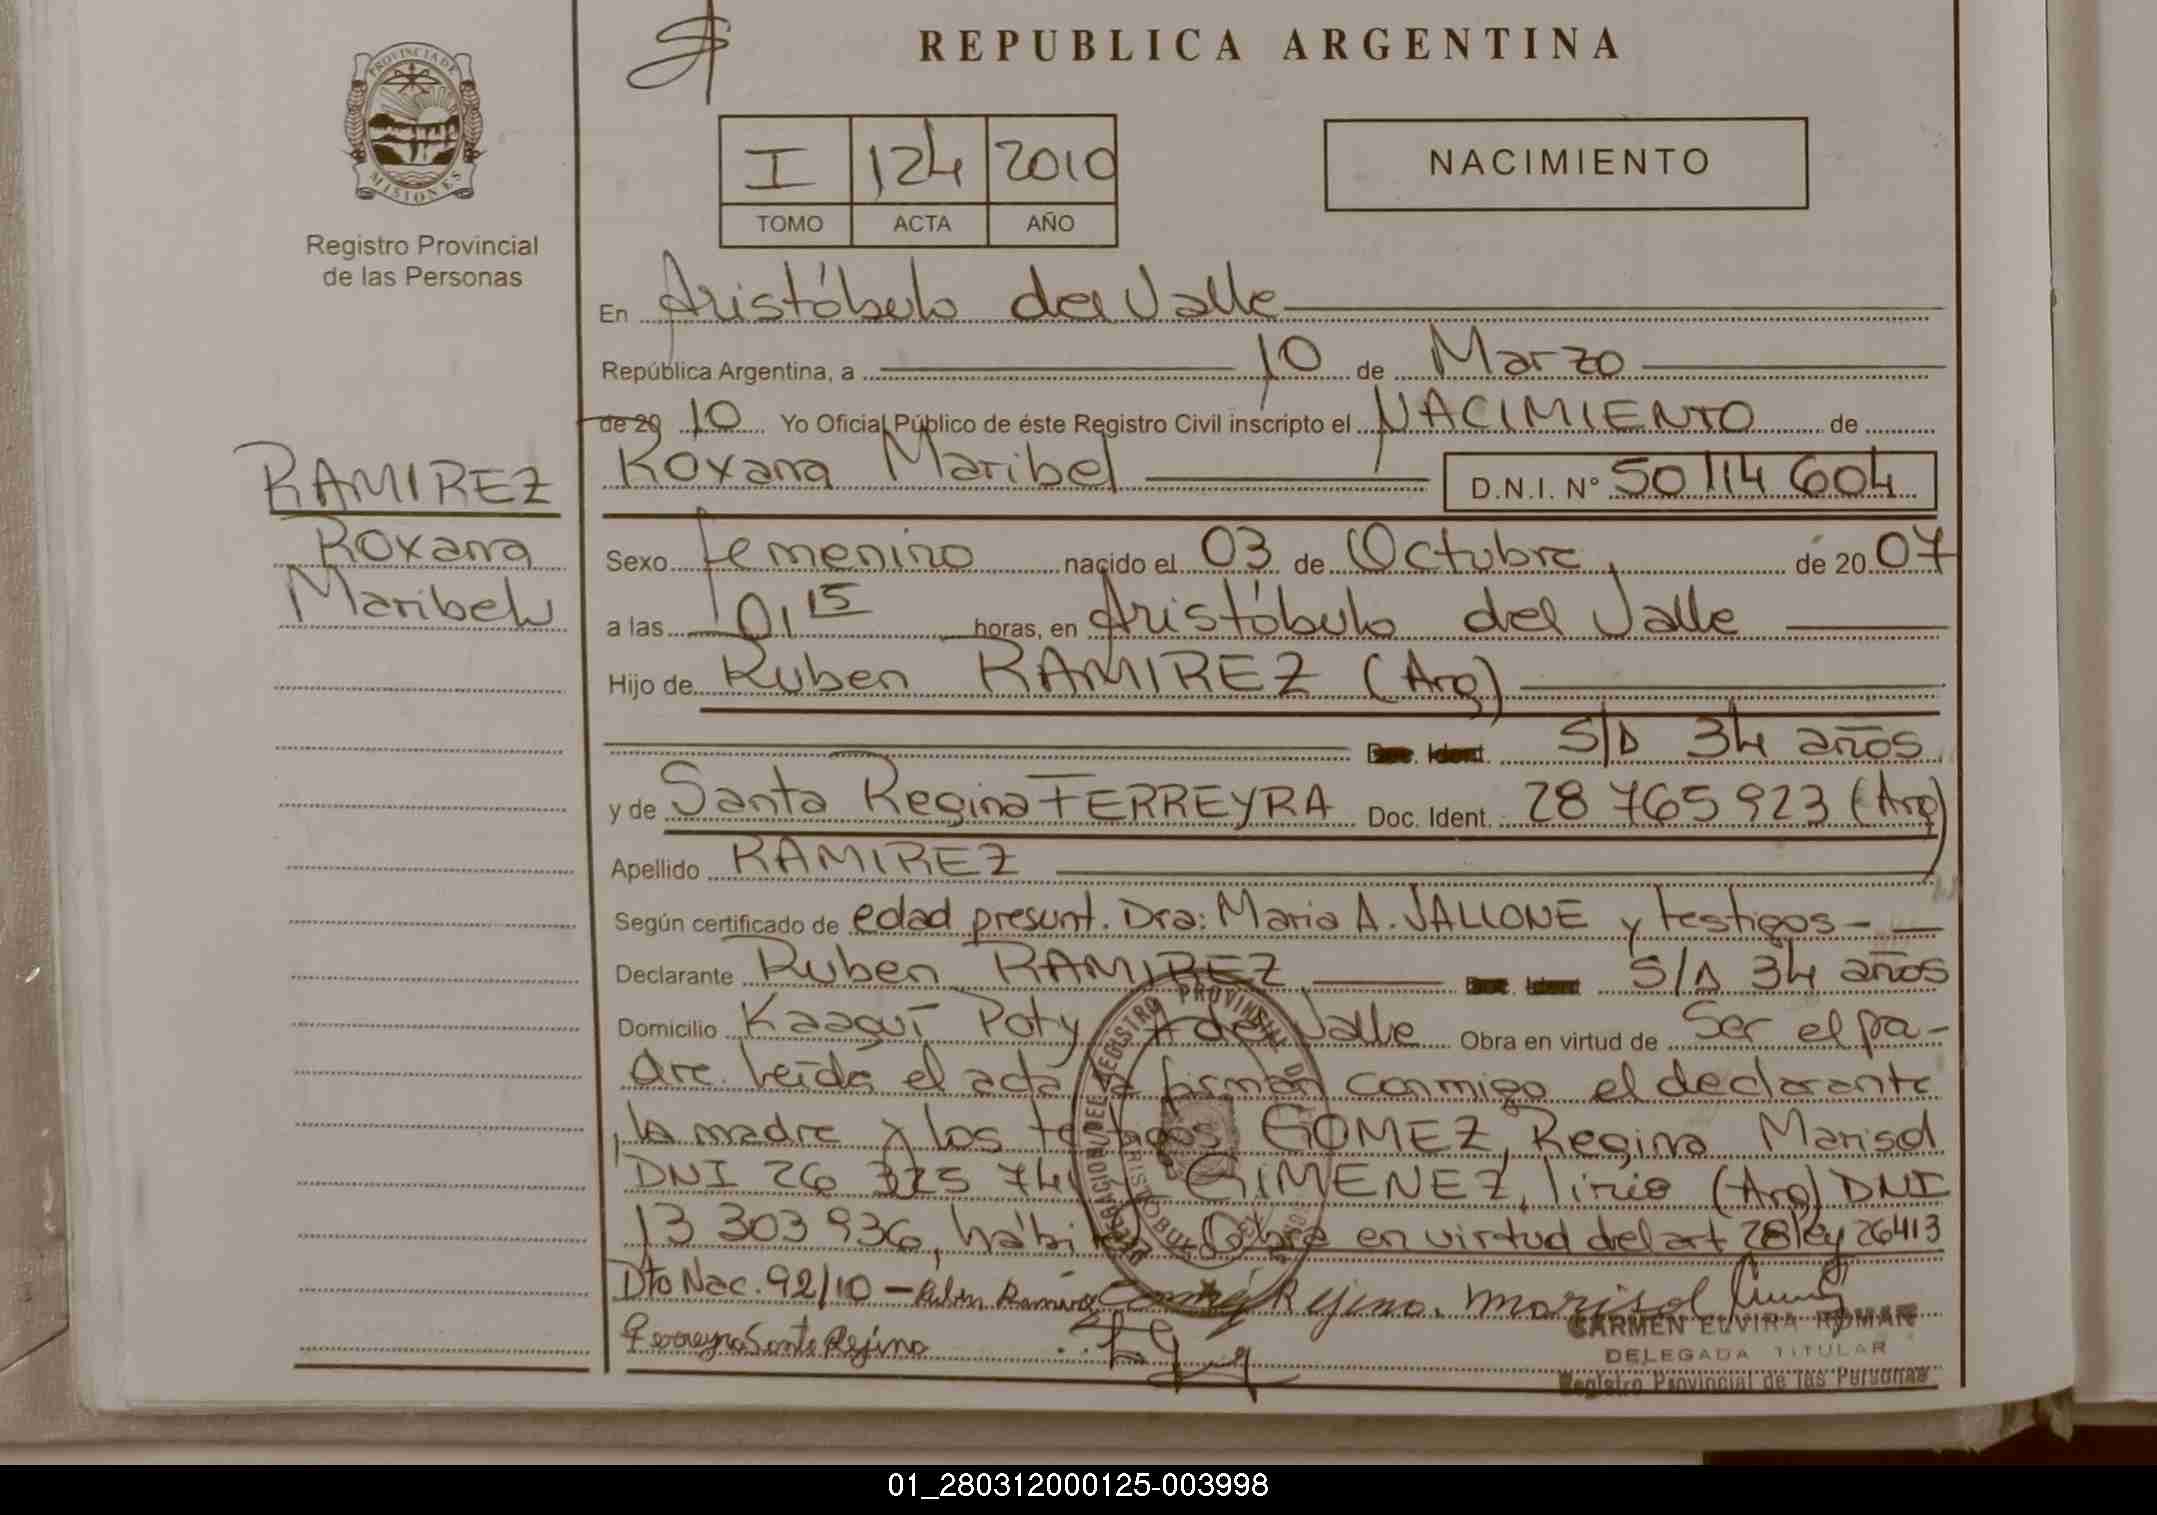 REPUBLICA ARGENTINA
PROVINCIA DE
MISIONES
Registro Provincial
de las Personas
I 124 2010
TOMO ACTA AÑO
NACIMIENTO
En Aristóbulo del Valle
República Argentina, a 10 de Marzo
de 20 10 Yo Oficial Público de éste Registro Civil inscripto el NACIMIENTO de
Roxana Maribel D.N.I. N° 50 114 604
RAMIREZ
Roxana
Maribel
Sexo femenino nacido el 03 de Octubre de 20 07
a las 01 15 horas, en Aristóbulo del Valle
Hijo de Ruben RAMIREZ (Arg)
S/D 34 años
y de Santa Regina FERREYRA Doc. Ident. 28 765 923 (Arg)
Apellido RAMIREZ
Según certificado de edad presunt. Dra: Maria A. VALLONE y testigos
Declarante Ruben RAMIREZ S/D 34 años
Domicilio Kaagui Poty A del Valle Obra en virtud de Ser el pa-
dre. Leída el acta la firman conmigo el declarante
, la madre y los testigos GOMEZ, Regina Marisol
DNI 26 325 74 GIMENEZ, lirio (Arg) DNI
13 303 936, hábi Obra en virtud del art 28 ley 26413
Dto Nac. 92/10 - Ruben Ramirez Rejina. Marisol
Ferreyra Santa Rejina
CARMEN ELVIRA ROMAN
DELEGADA TITULAR
Registro Provincial de las Personas
01_280312000125-003998